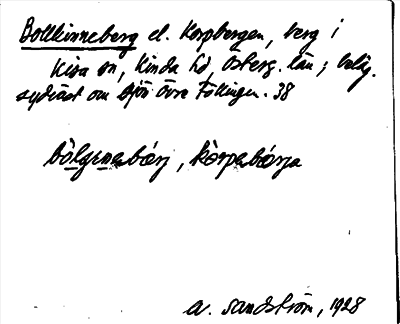 Bollkinneberg el. Korpbergen, berg i
Kisa sn, Kinda hd, Österg. län; beläg.
sydväst om sjön övre Föllingen. 38
bòlgɩnəbærj, kòrpəbærja
A. Sandström, 1928